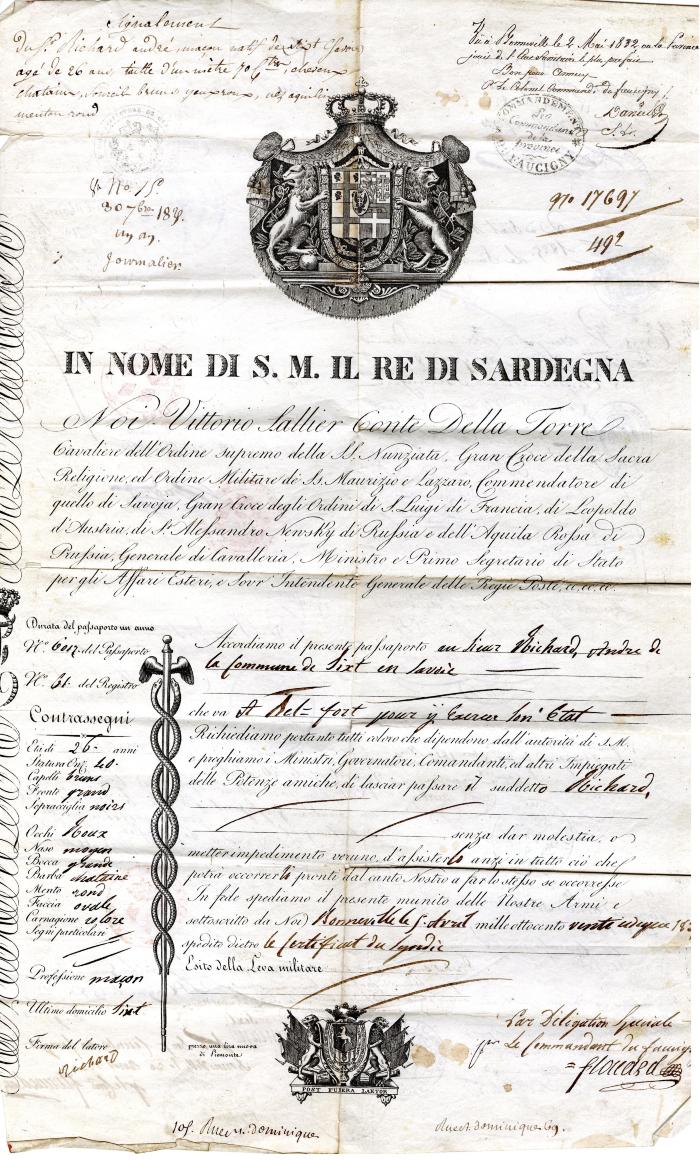 Signalement
du Sr. Richard andré, maçon natif de Sixt (Savoie)
agé de 26 ans, taille d'un mètre 70 ctres, cheveux
chatains, sourcil bruns yeux roux, nez aquilin
menton rond
Vu à Bonneville le 2 Mai 1832
Bon pour
Pr. Le Colonel Commandt. du faucigny
COMMANDEMENT
DI FAUCIGNY
No 15
30 7bre 183
un an
Journalier
No 17697
492
IN NOME DI S. M. IL RE DI SARDEGNA
Noi Vittorio Sallier Conte Della Torre
Cavaliere dell'Ordine Supremo della SS. Nunziata, Gran Croce della Sacra
Religione, ed Ordine Militare di Ss. Maurizio e Lazzaro, Commendatore di
quello di Savoja, Gran Croce degli Ordini di S. Luigi di Francia, di Leopoldo
d'Austria, di St. Alessandro Newsky di Russia e dell'Aquila Rossa di
Prussia, Generale di Cavalleria, Ministro e Primo Segretario di Stato
per gli Affari Esteri, e Sovr'Intendente Generale delle Regie Poste, ec. ec. ec.
Durata del passaporto un anno
No. del Passaporto
No. 61. del Registro
Contrassegni
Età di 26 anni
Statura On. 40.
Capelli bruns
Fronte grand
Sopracciglia noirs
Occhi Roux
Naso moyen
Bocca grande
Barba chataine
Mento rond
Faccia ovale
Carnagione colore
Segni particolari
Professione maçon
Ultimo domicilio Sixt
Firma del latore
Richard
Accordiamo il presente passaporto au Sieur Richard, André de
la Commune de Sixt en Savoie
che va A Bel-fort pour y Exercer son Etat
Richiediamo pertanto tutti coloro che dipendono dall'autorità di S. M.
e preghiamo i Ministri, Governatori, Comandanti, ed altri Impiegati
delle Potenze amiche, di lasciar passare il suddetto Richard,
senza dar molestia, o
metter impedimento veruno, d'assisterlo anzi in tutto ciò che
potrà occorrerlo pronti dal canto Nostro a far lo stesso se occorresse
In fede spediamo il presente munito delle Nostre Armi e
sottoscritto da Noi Bonneville le 5 Avril mille ottocento
spedito dietro le Certificat du Syndic
Esito della Leva militare
prezzo, una lira nuova
di Piemonte
POST FUNERA LAETOR
Par Déligation Speciale
pr. Le Commandant du faucigny
105. Rue st. dominique
Rue st. dominique 69.